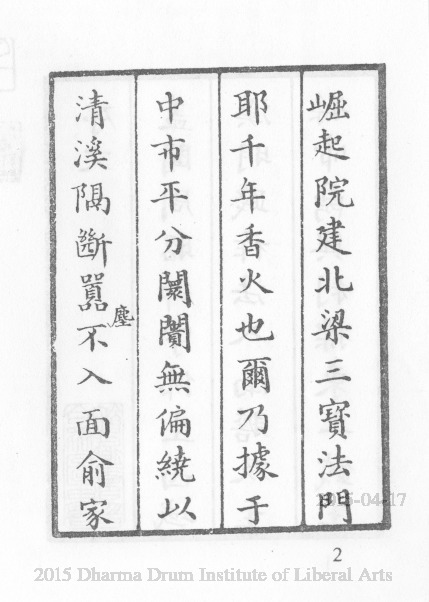 崛起院建北梁三寶法門
耶千年香火也爾乃據于
中市平分闤闠無偏繞以
清溪隔斷囂塵不入面俞家
2
2015 Dharma Drum Institute of Liberal Arts